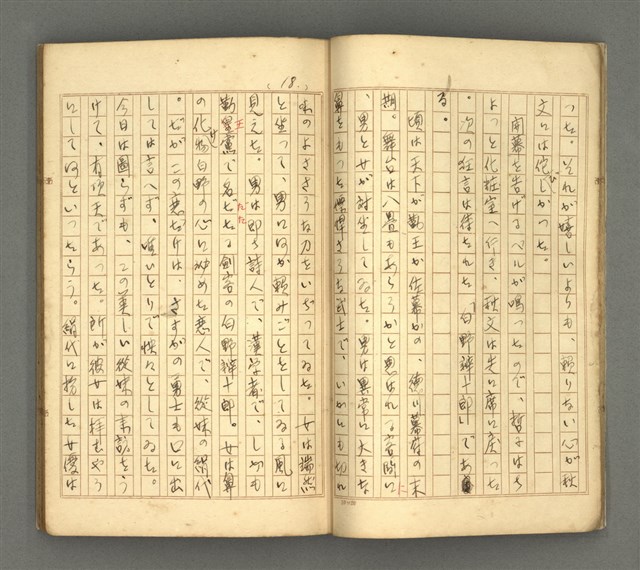 つた。それが嬉しいよりも、頼りない心が秋
文には侘びしかつた。
開幕を告げるベルが鳴つたので、哲子はち
よつと化粧室へ行き、秋文は先に席に戻つた
。次の狂言は待たれた「白野辨十郎」であ
る。
頃は天下が勤王か佐幕かの、徳川幕府の末
期。舞台は八畳もあらうかと思はれる客間に
、男と女が対坐してゐた。男は異常に大きな
鼻をもつた慓悍さうな武士で、いかにも切れ
(18.)
味のよささうな刀をいぢつてゐた。女は端然
と坐つて、男に何か頼みごとをしてゐる風に
見えた。男は即ち詩人で、漢学者で、しかも
勤王黨で名だたる剣客の白野辨十郎。女は鼻
の化物白野の心に秘めた恋人で、従妹の絹代
。だがこの恋だけは、さすがの勇士も口に出
しては言へず、唯ひとりで怏々としてゐた。
今日は図らずも、この美しい従妹の来訪をう
けて、有頂天であつた。所が彼女は拝むやう
にして何といつたらう。絹代に扮した女優は